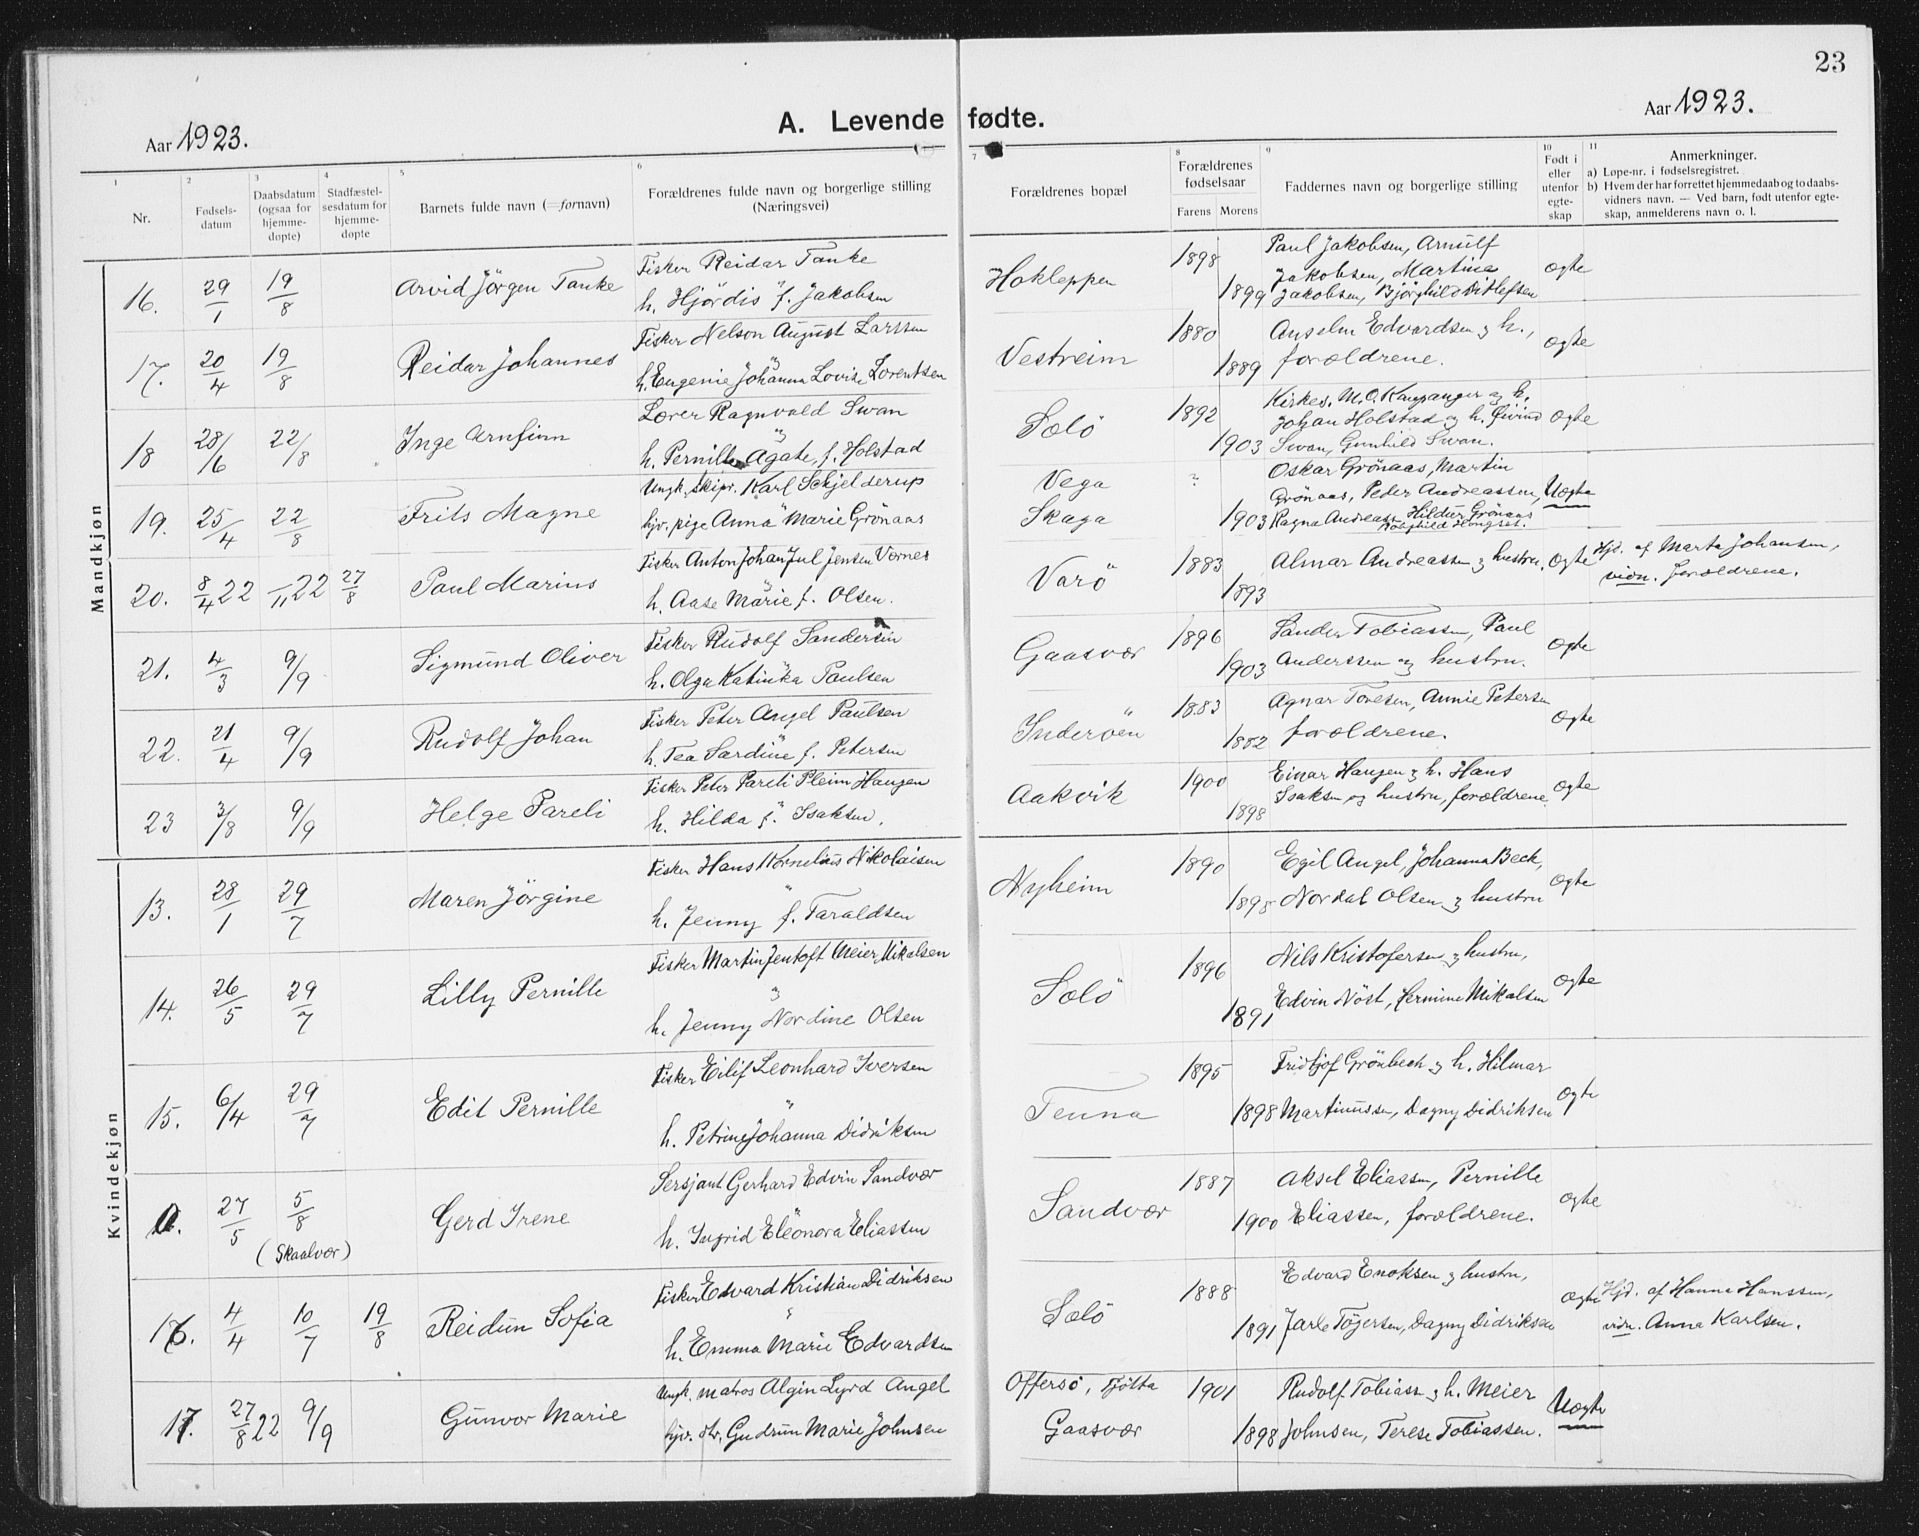 23
Aar 1923.
A. Levende fødte.
Aar 1923.
1 2 3 4 5 6 7 8 9 10 11
Nr.
Fødsels-
datum
Daabsdatum
(ogsaa for
hjemme-
døpte)
Stadfæstel-
sesdatum for
hjemme-
døpte
Barnets fulde navn (=fornavn)
Forældrenes fulde navn og borgerlige stilling
(Næringsvei)
Forældrenes bopæl
Forældrenes
fødselsaar
Farens Morens
Faddernes navn og borgerlige stilling
Født i
eller
utenfor
egte-
skap
Anmerkninger.
a) Løpe-nr. i fødselsregistret.
b) Hvem der har forrettet hjemmedaab og to daabs-
vidners navn. — Ved barn, født utenfor egte-
skap, anmelderens navn o. l.
Mandkjøn
16. 29/1 19/8 Arvid Jörgen Tanke
Fisker Reidar Tanke
h. Hjördis f. Jakobsen
Hokleppen 1898 1899
Paul Jakobsen, Arnulf
Jakobsen, Martine
Jakobsen, Bjørghild Ditlefsen
Ægte
17. 20/4 19/8 Reidar Johannes
Fisker Nelson August Larssen
h. Eugenie Johanna Lovise Lorentsen
Vestreim 1880 1889
Anselm Edvardsen og h.,
forældrene.
Ægte
18 28/6 22/8 Inge Arnfinn
Lærer Ragnvald Swan
h. Pernille Agate, f. Holstad
Sælö 1892 1903
Kirkes. M. O. Kaupanger og h.
Johan Holstad og h. Eivind
Swan, Gunhild Swan.
Ægte
19. 25/4 22/8 Frits Magne
Ungk. skipr. Karl Schjelderup
hjv. pige Anna Marie Grönaas
Vega
Skaga
? 1903
Oskar Grönaas, Martin
Grönaas, Peder Andreassen,
Ragna Andreass Hildur Grönaas
Uægte
20. 8/4 22 /11 22 27/8 Paul Marius
Fisker Anton Johan Jul Jensen Værnes
h. Aase Marie f. Olsen.
Varö 1883 1893
Almar Andreassen og hustru.
Ægte
Hjd. af Marta Johansen,
vidn. forældrene.
21. 4/3 9/9 Sigmund Oliver
Fisker Rudolf Sandersen
h. Olga Katinka Paulsen
Gaasvær 1896 1903
Sander Tobiassen, Paul
Anderssen og hustru.
Ægte
22. 21/4 9/9 Rudolf Johan
Fisker Peter Angel Paulsen
h. Tea Sardine f. Petersen
Inderöen 1883 1882
Agnar Toresen, Annie Petersen
forældrene.
Ægte
23 3/8 9/9 Helge Pareli
Fisker Peter Pareli Pleim Haugen
h. Hilda f. Isaksen.
Aakvik 1900 1898
Einar Haugen og h. Hans
Isaksen og hustru, forældrene.
Ægte
Kvindekjøn
13. 28/1 29/7 Maren Jörgine
Fisker Hans Kornelius Nikolaisen
h. Jenny f. Taraldsen
Nyheim 1890 1895
Egil Angel, Johanna Beck,
Nordal Olsen og hustru
Ægte
14. 26/5 29/7 Lilly Pernille
Fisker Martin Jentoft Meier Mikalsen
h. Jenny Nordine Olsen
Sælö 1896 1891
Nils Kristofersen og hustru,
Edvin Nöst, Hermine Mikalsen
Ægte
15. 6/4 29/7 Edit Pernille
Fisker Eilif Leonhard Iversen
h. Petrine Johanna Didriksen
Tenna 1895 1898
Fridtjof Grönbech og h. Hilmar
Martinussen, Dagny Didriksen
Ægte
0. 27/5 5/8 (Skaalvær) Gerd Irene
Sersjant Gerhard Edvin Sandvær
h. Ingrid Eleonora Eliassen
Sandvær 1887 1900
Aksel Eliassen, Pernille
Eliassen, forældrene.
Ægte
16. 4/4 10/7 19/8 Reidun Sofia
Fisker Edvard Kristian Didriksen
h. Emma Marie Edvardsen
Sælö 1888 1891
Edvard Enoksen og hustru,
Jarle Tögersen, Dagny Didriksen
Ægte
Hjd. af Hanna Hanssen,
vidn. Anna Karlsen.
17. 27/8 22 9/9 Gunvor Marie
Ungk. matros Algin Lyrd Angel
hjv. dtr. Gudrun Marie Johnsen
Offersö, Tjötta
Gaasvær
1901 1898
Rudolf Tobiass og h. Meier
Johnsen, Terese Tobiassen.
Uægte